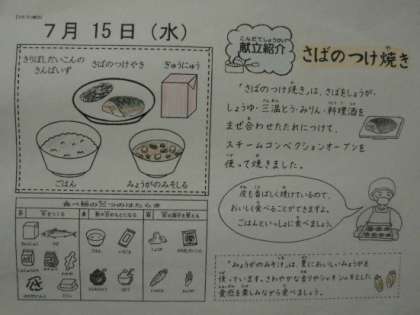 7月15日（水）
きりぼしだいこんの
さんばいず
さばのつけやき
ぎゅうにゅう
ごはん
みょうがのみそしる
こんだてしょうかい
献立紹介
さばのつけ焼き
「さばのつけ焼き」は、さばをしょうが、
しょうゆ・三温とう・みりん・料理酒を
まぜ合わせたたれにつけて、
スチームコンベクションオーブンを
使って焼きました。
皮も香ばしく焼けているので、
おいしく食べることができますよ。
ごはんといっしょに食べましょう。
「みょうがのみそ汁」は、夏においしいみょうがを
使っています。さわやかな香りやシャキシャキとした
食感を楽しみながら食べましょう。
食べ物の三つのはたらき